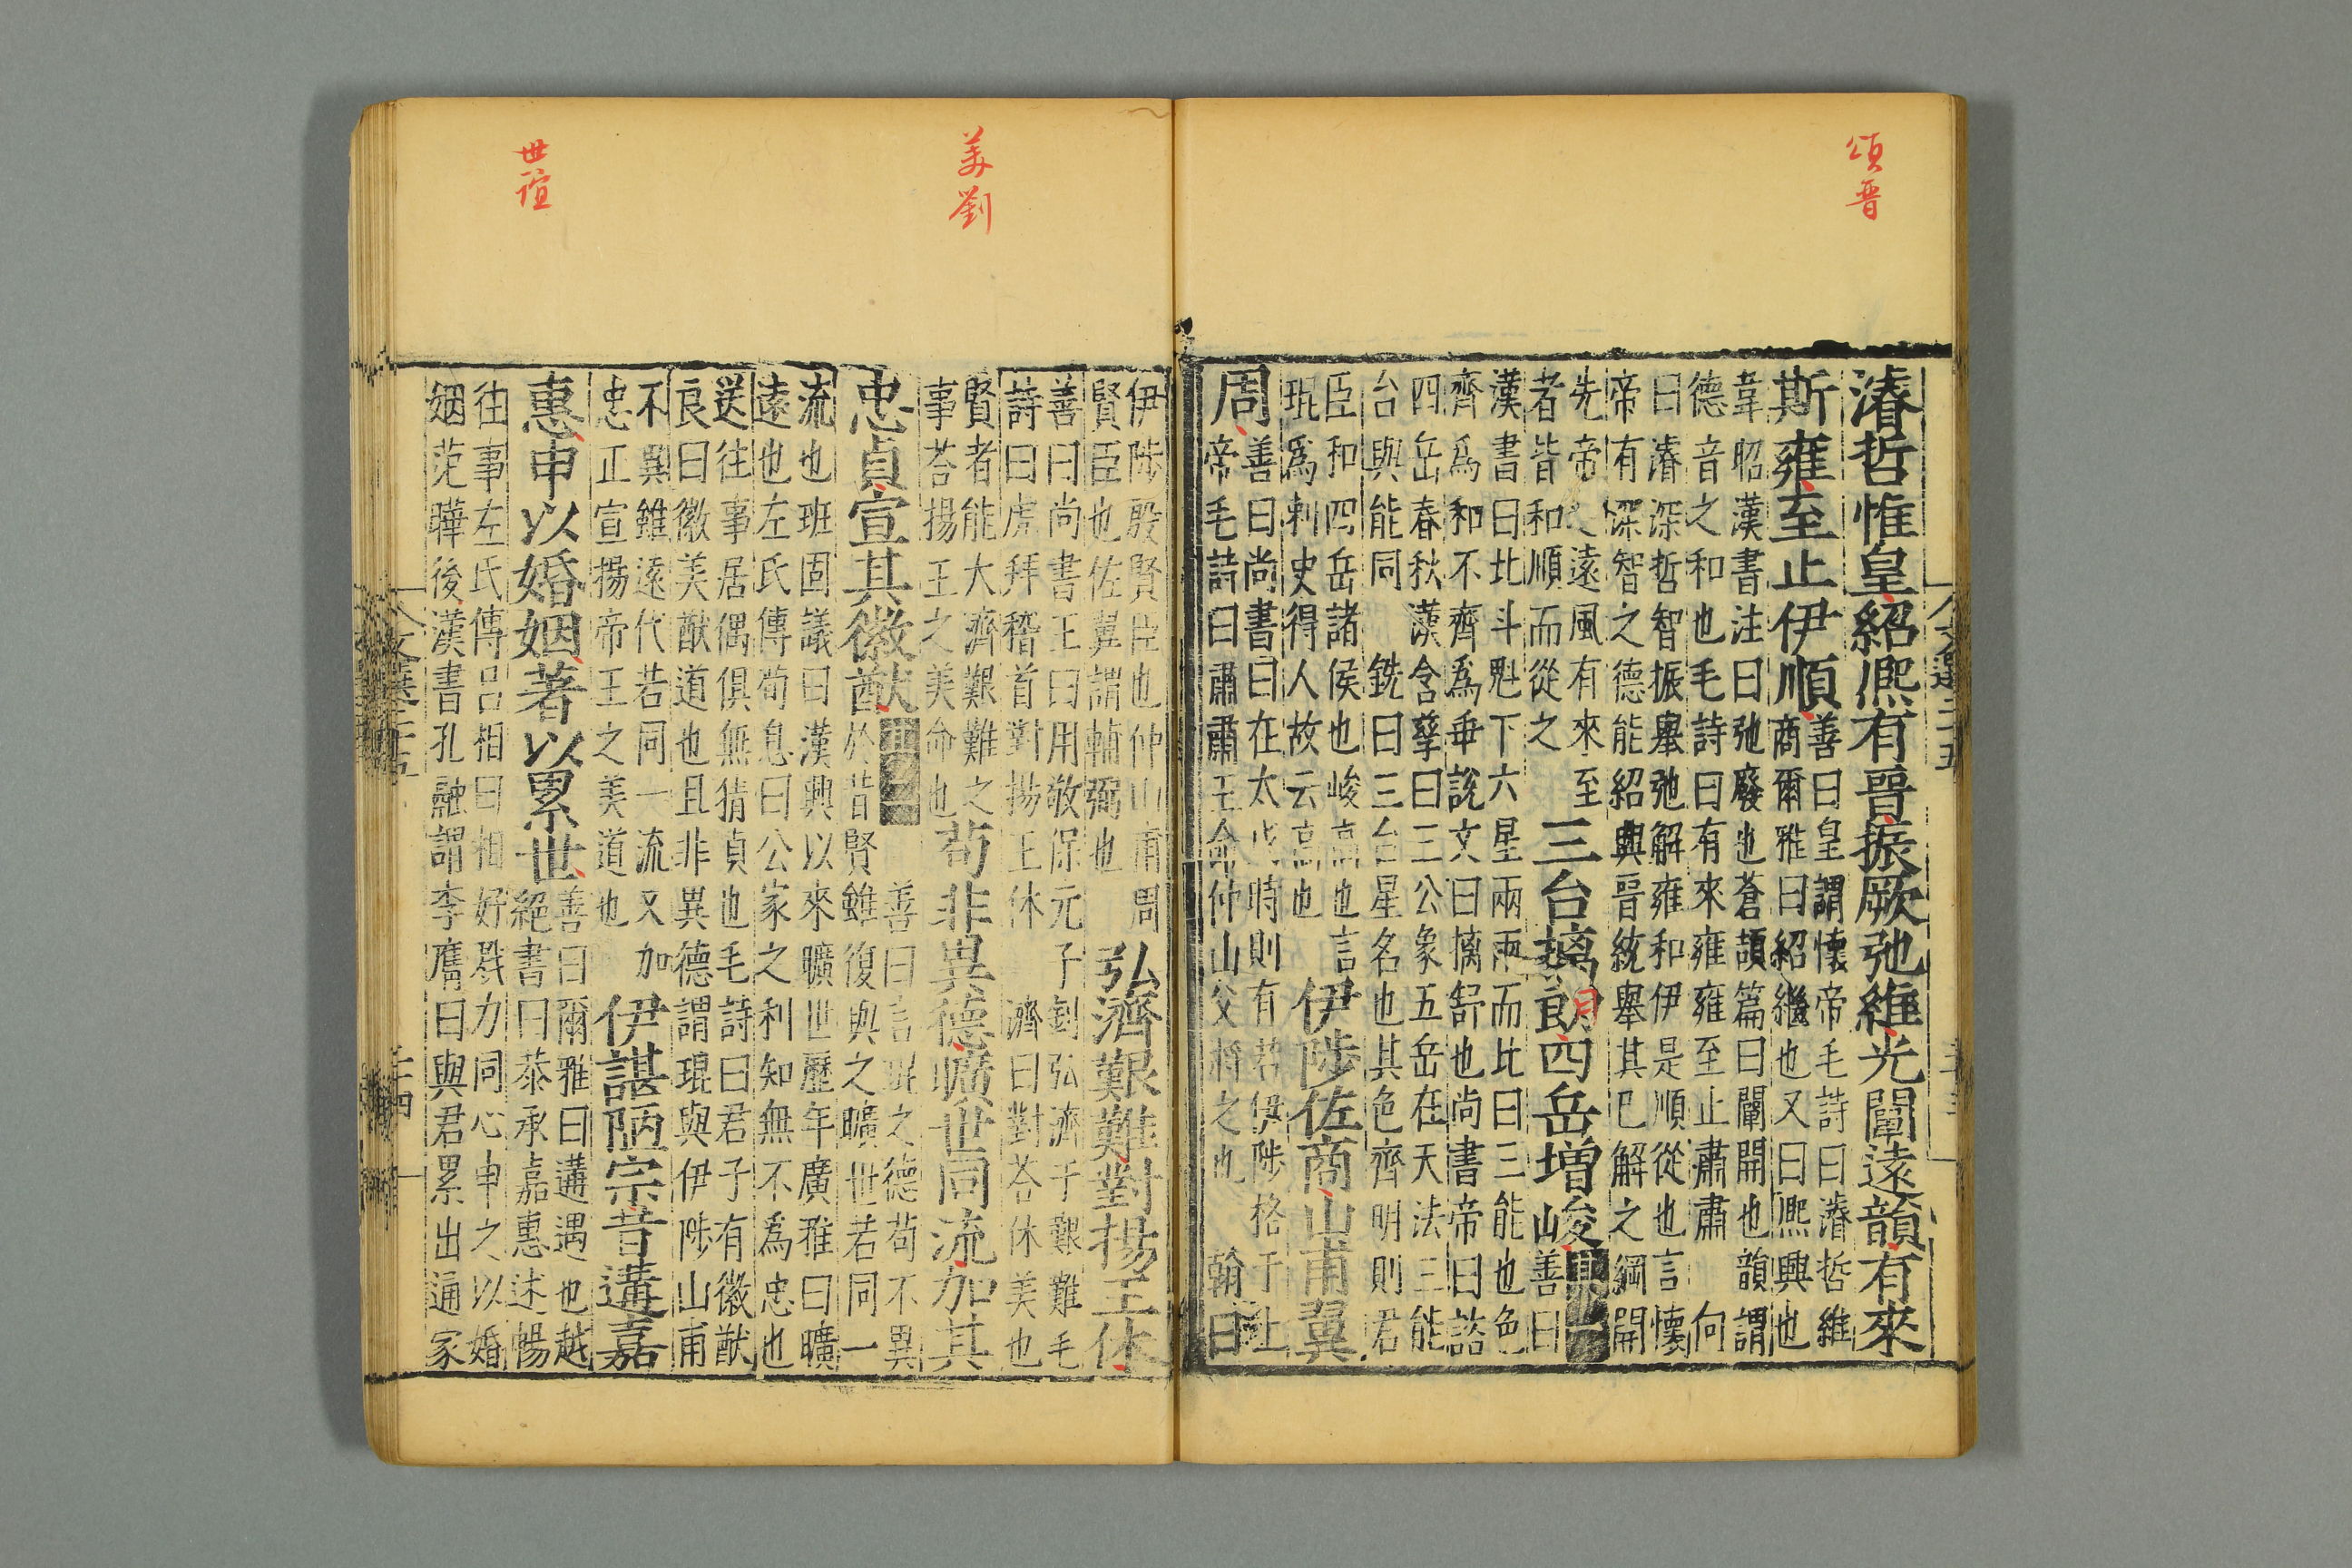 頌晋
濬哲惟皇紹熈有晉振厥弛維光闡遠韻有來
斯雍至止伊順
善曰皇謂懐帝毛詩曰濬哲維
商爾雅曰紹繼也又曰熈興也
韋昭漢書注曰弛廢也蒼頡篇曰闡開也韻謂
德音之和也毛詩曰有來雍雍至止肅肅 向
曰濬深哲智振舉弛解雍和伊是順從也言懐
帝有深智之德能紹興晉統舉其已解之綱開
先帝之遠風有來至
者皆和順而從之
三台摛朗四岳増峻
善曰
漢書曰北斗魁下六星兩兩而比曰三能也色
齊爲和不齊爲乖說文曰摛舒也尚書帝曰諮
四岳春秋漢含孳曰三公象五岳在天法三能
台與能同 銑曰三台星名也其色齊明則君
臣和四岳諸侯也峻高也言
琨爲刺史得人故云高也
伊陟佐商山甫翼
周
善曰尚書曰在太戊時則有若伊陟格于上
帝毛詩曰肅肅王命仲山父將之也 翰曰
美劉
伊陟殷賢臣也仲山甫周
賢臣也佐翼謂輔弼也
弘濟艱難對揚王休
善曰尚書王曰用敬保元子釗弘濟于艱難毛
詩曰虎拜稽首對揚王休 濟曰對荅休美也
賢者能大濟艱難之
事荅揚王之美命也
苟非異德曠世同流加其
忠貞宣其徽猷
善曰言琨之德苟不異
於昔賢雖復與之曠世若同一
流也班固議曰漢興以來曠世歷年廣雅曰曠
遠也左氏傳荀息曰公家之利知無不爲忠也
送往事居偶俱無猜貞也毛詩曰君子有徽猷
良曰徽美猷道也且非異德謂琨與伊陟山甫
不異雖遠代若同一流又加
忠正宣揚帝王之美道也
伊諶陋宗昔遘嘉
世誼
惠申以婚姻著以累世
善曰爾雅曰遘遇也越
絕書曰恭承嘉惠述暢
往事左氏傳呂相曰相好戮力同心申之以婚
姻范曄後漢書孔融謂李膺曰與君累出通家